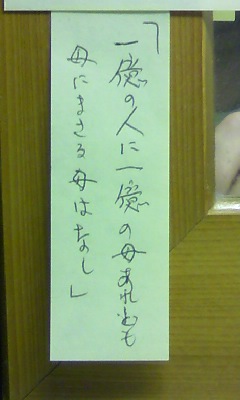 「一億の人に一億の母あれども
母にまさる母はなし」